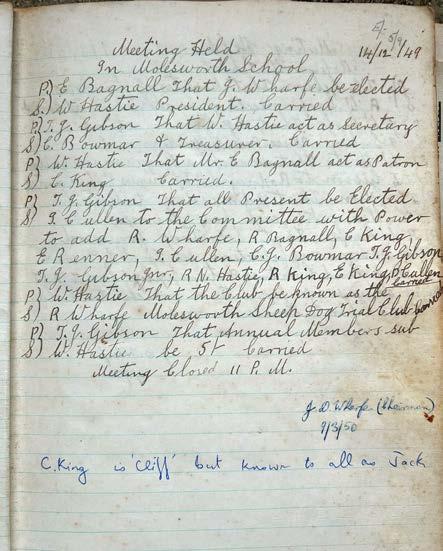 14/12/49
Meeting Held
In Molesworth School
P) E Bagnall That J. Wharfe be elected
S) W Hastie President. Carried
P) T. J. Gibson That W. Hastie act as Secretary
S) C. Bowmar & Treasurer. Carried
P) W. Hastie That Mr. E Bagnall act as Patron
S) C. King Carried.
P) T. J. Gibson That all Present be Elected
S) I. Cullen to the Committee with Power
to add R. Wharfe, R Bagnall, C King
E Renner, I. Cullen, C. J. Bowmar T. J. Gibson
T. J. Gibson Jnr, R N. Hastie, R King, E King, D Cullen
Carried
P) W. Hastie That the Club be known as the
S) R Wharfe Molesworth Sheep Dog Trial Club Carried
P) T. J. Gibson That Annual Members sub
S) W. Hastie be 5/- Carried
Meeting Closed 11 P. M.
J D Wharfe (Chairman)
9/3/50
C. King is 'Cliff' but known to all as Jack